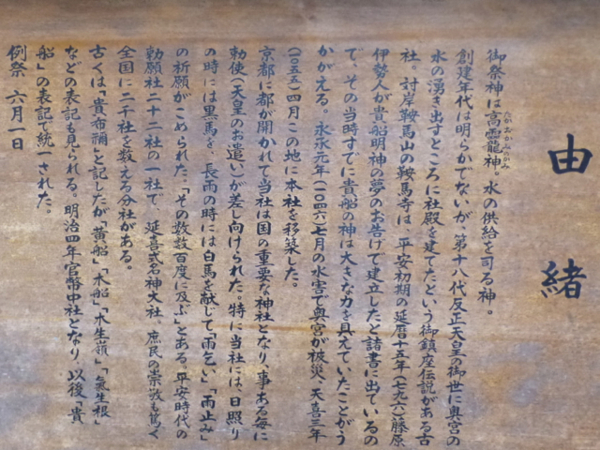 由緒
御祭神は高龗龍神。水の供給を司る神。
たかおかみのかみ
創建年代は明らかでないが、第十八代反正天皇の御世に奥宮の
水の湧き出すところに社殿を建てたという御鎮座伝説がある古
社。対岸鞍馬山の鞍馬寺は、平安初期の延暦十五年(七九六)藤原
伊勢人が貴船明神の夢のお告げで建立したと諸書に出ているの
で、その当時すでに貴船の神は大きな力を具えていたことがう
かがえる。永承元年(一〇四六)七月の水害で奥宮が被災、天喜三年
(一〇五五)四月この地に本社を移築した。
京都に都が開かれて当社は国の重要な神社となり、事ある毎に
勅使(天皇のお遣い)が差し向けられた。特に当社には、日照り
の時には黒馬を、長雨の時には白馬を献じて「雨乞い」「雨止み」
の祈願がこめられた。「その数数百度に及ぶ」とある。平安時代の
勅願社二十二社の一社で、延喜式名神大社。庶民の崇敬も篤く
全国に二千社を数える分社がある。
古くは「貴布禰」と記したが「黄船」「木船」「木生嶺」「氣生根」
などの表記も見られる。明治四年官幣中社となり、以後「貴
船」の表記で統一された。
例祭 六月一日